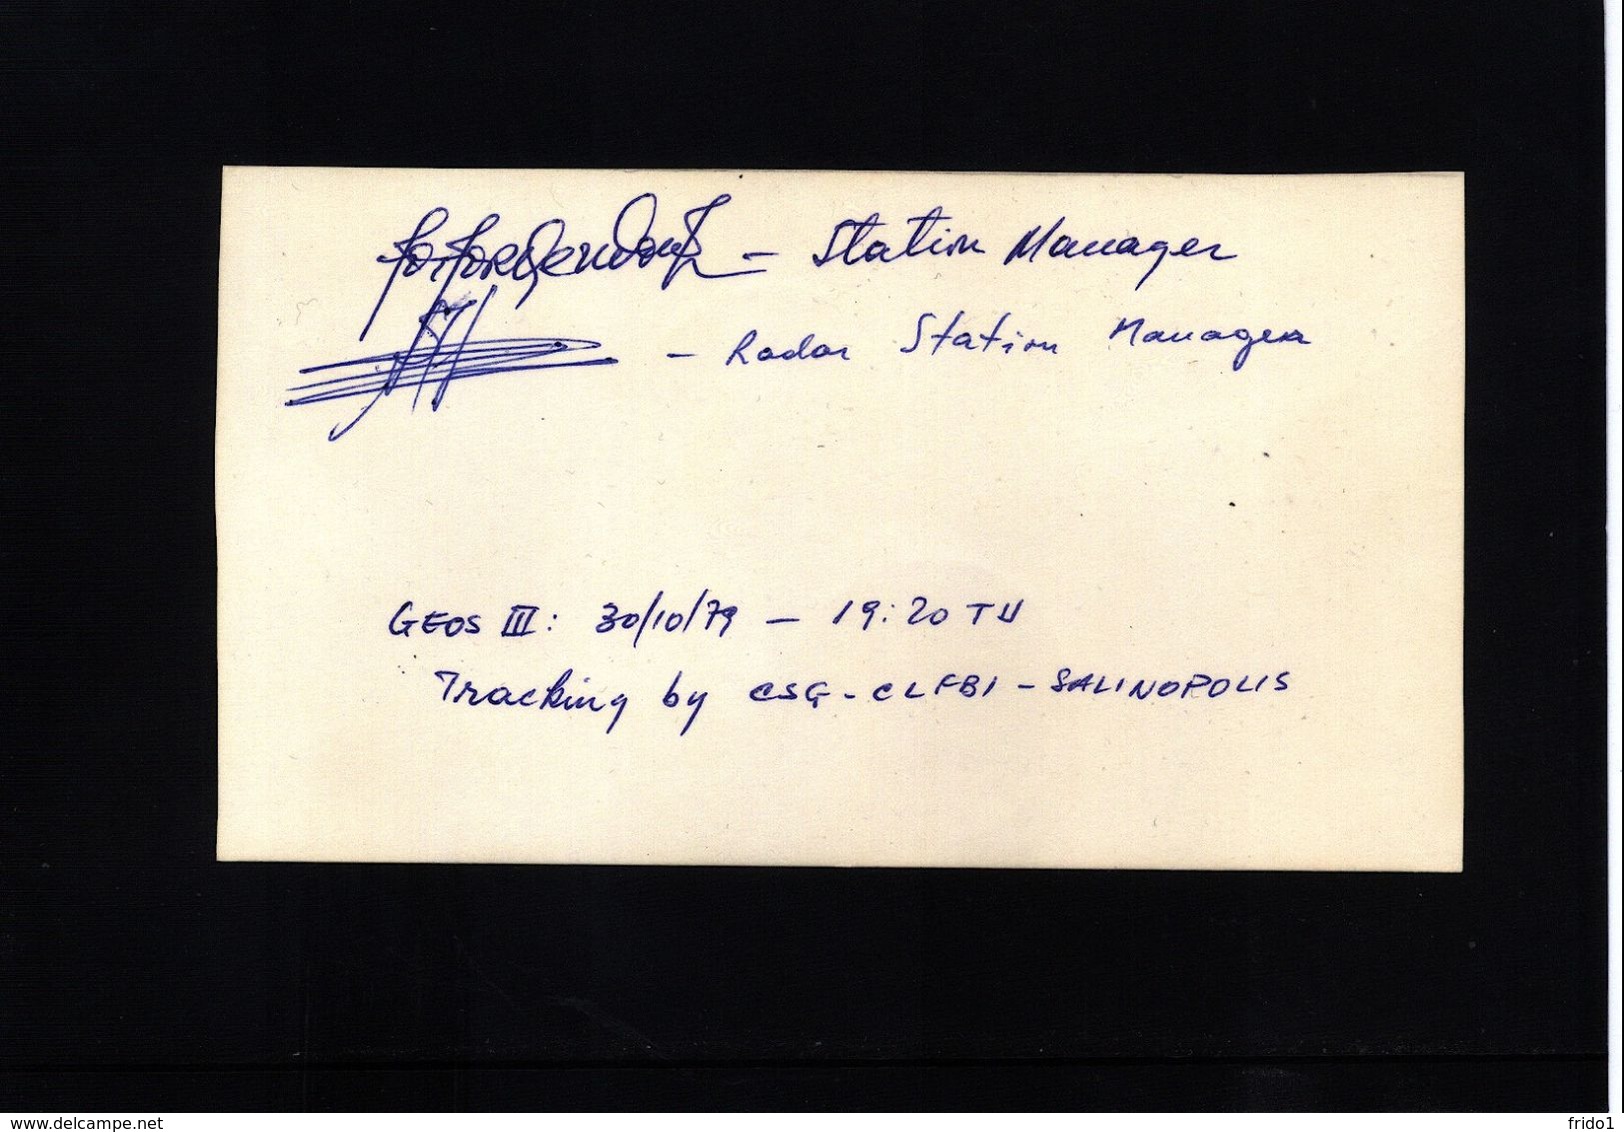 – Station Manager
– Radar Station Manager
GEOS III: 30/10/79 – 19:20 TU
Tracking by CSG - CLFBI - SALINOPOLIS
www.delcampe.net
frido1